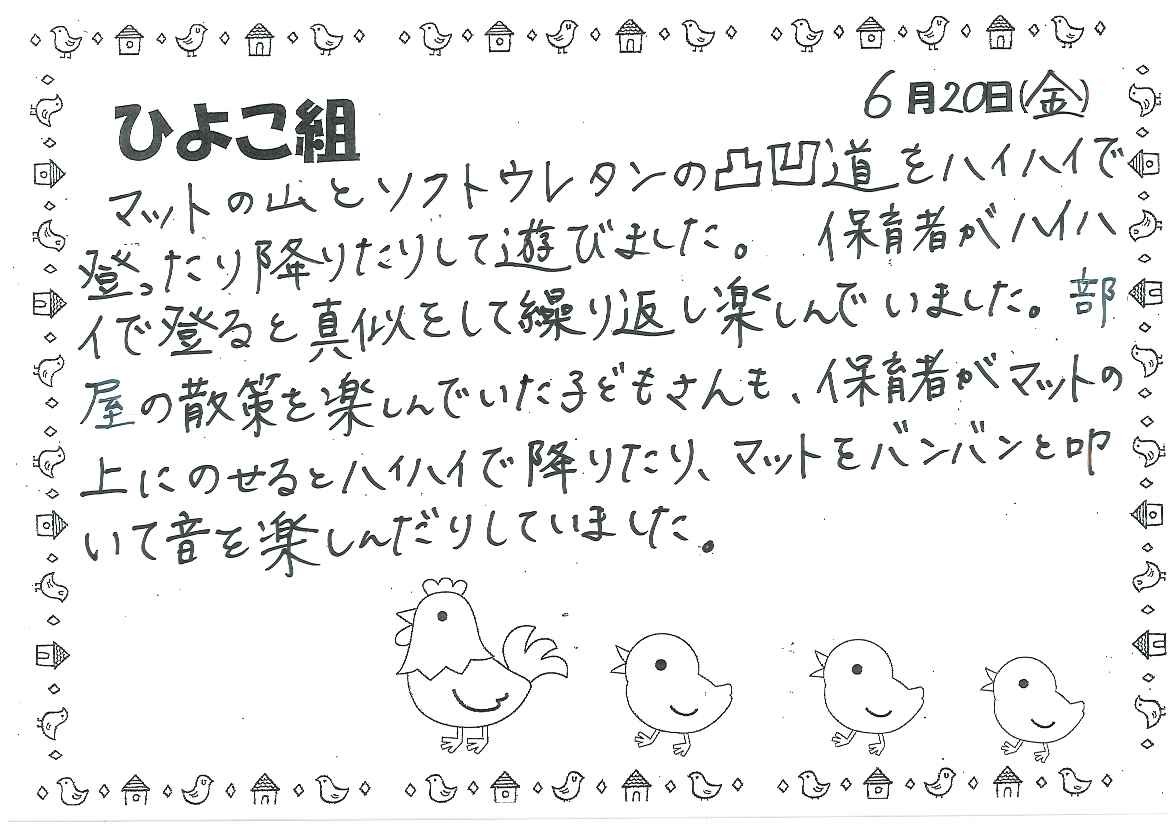 6月20日(金)
ひよこ組
マットの山とソフトウレタンの凸凹道をハイハイで
登ったり降りたりして遊びました。 保育者がハイハ
イで登ると真似をして繰り返し楽しんでいました。部
屋の散策を楽しんでいた子どもさんも、保育者がマットの
上にのせるとハイハイで降りたり、マットをバンバンと叩
いて音を楽しんだりしていました。